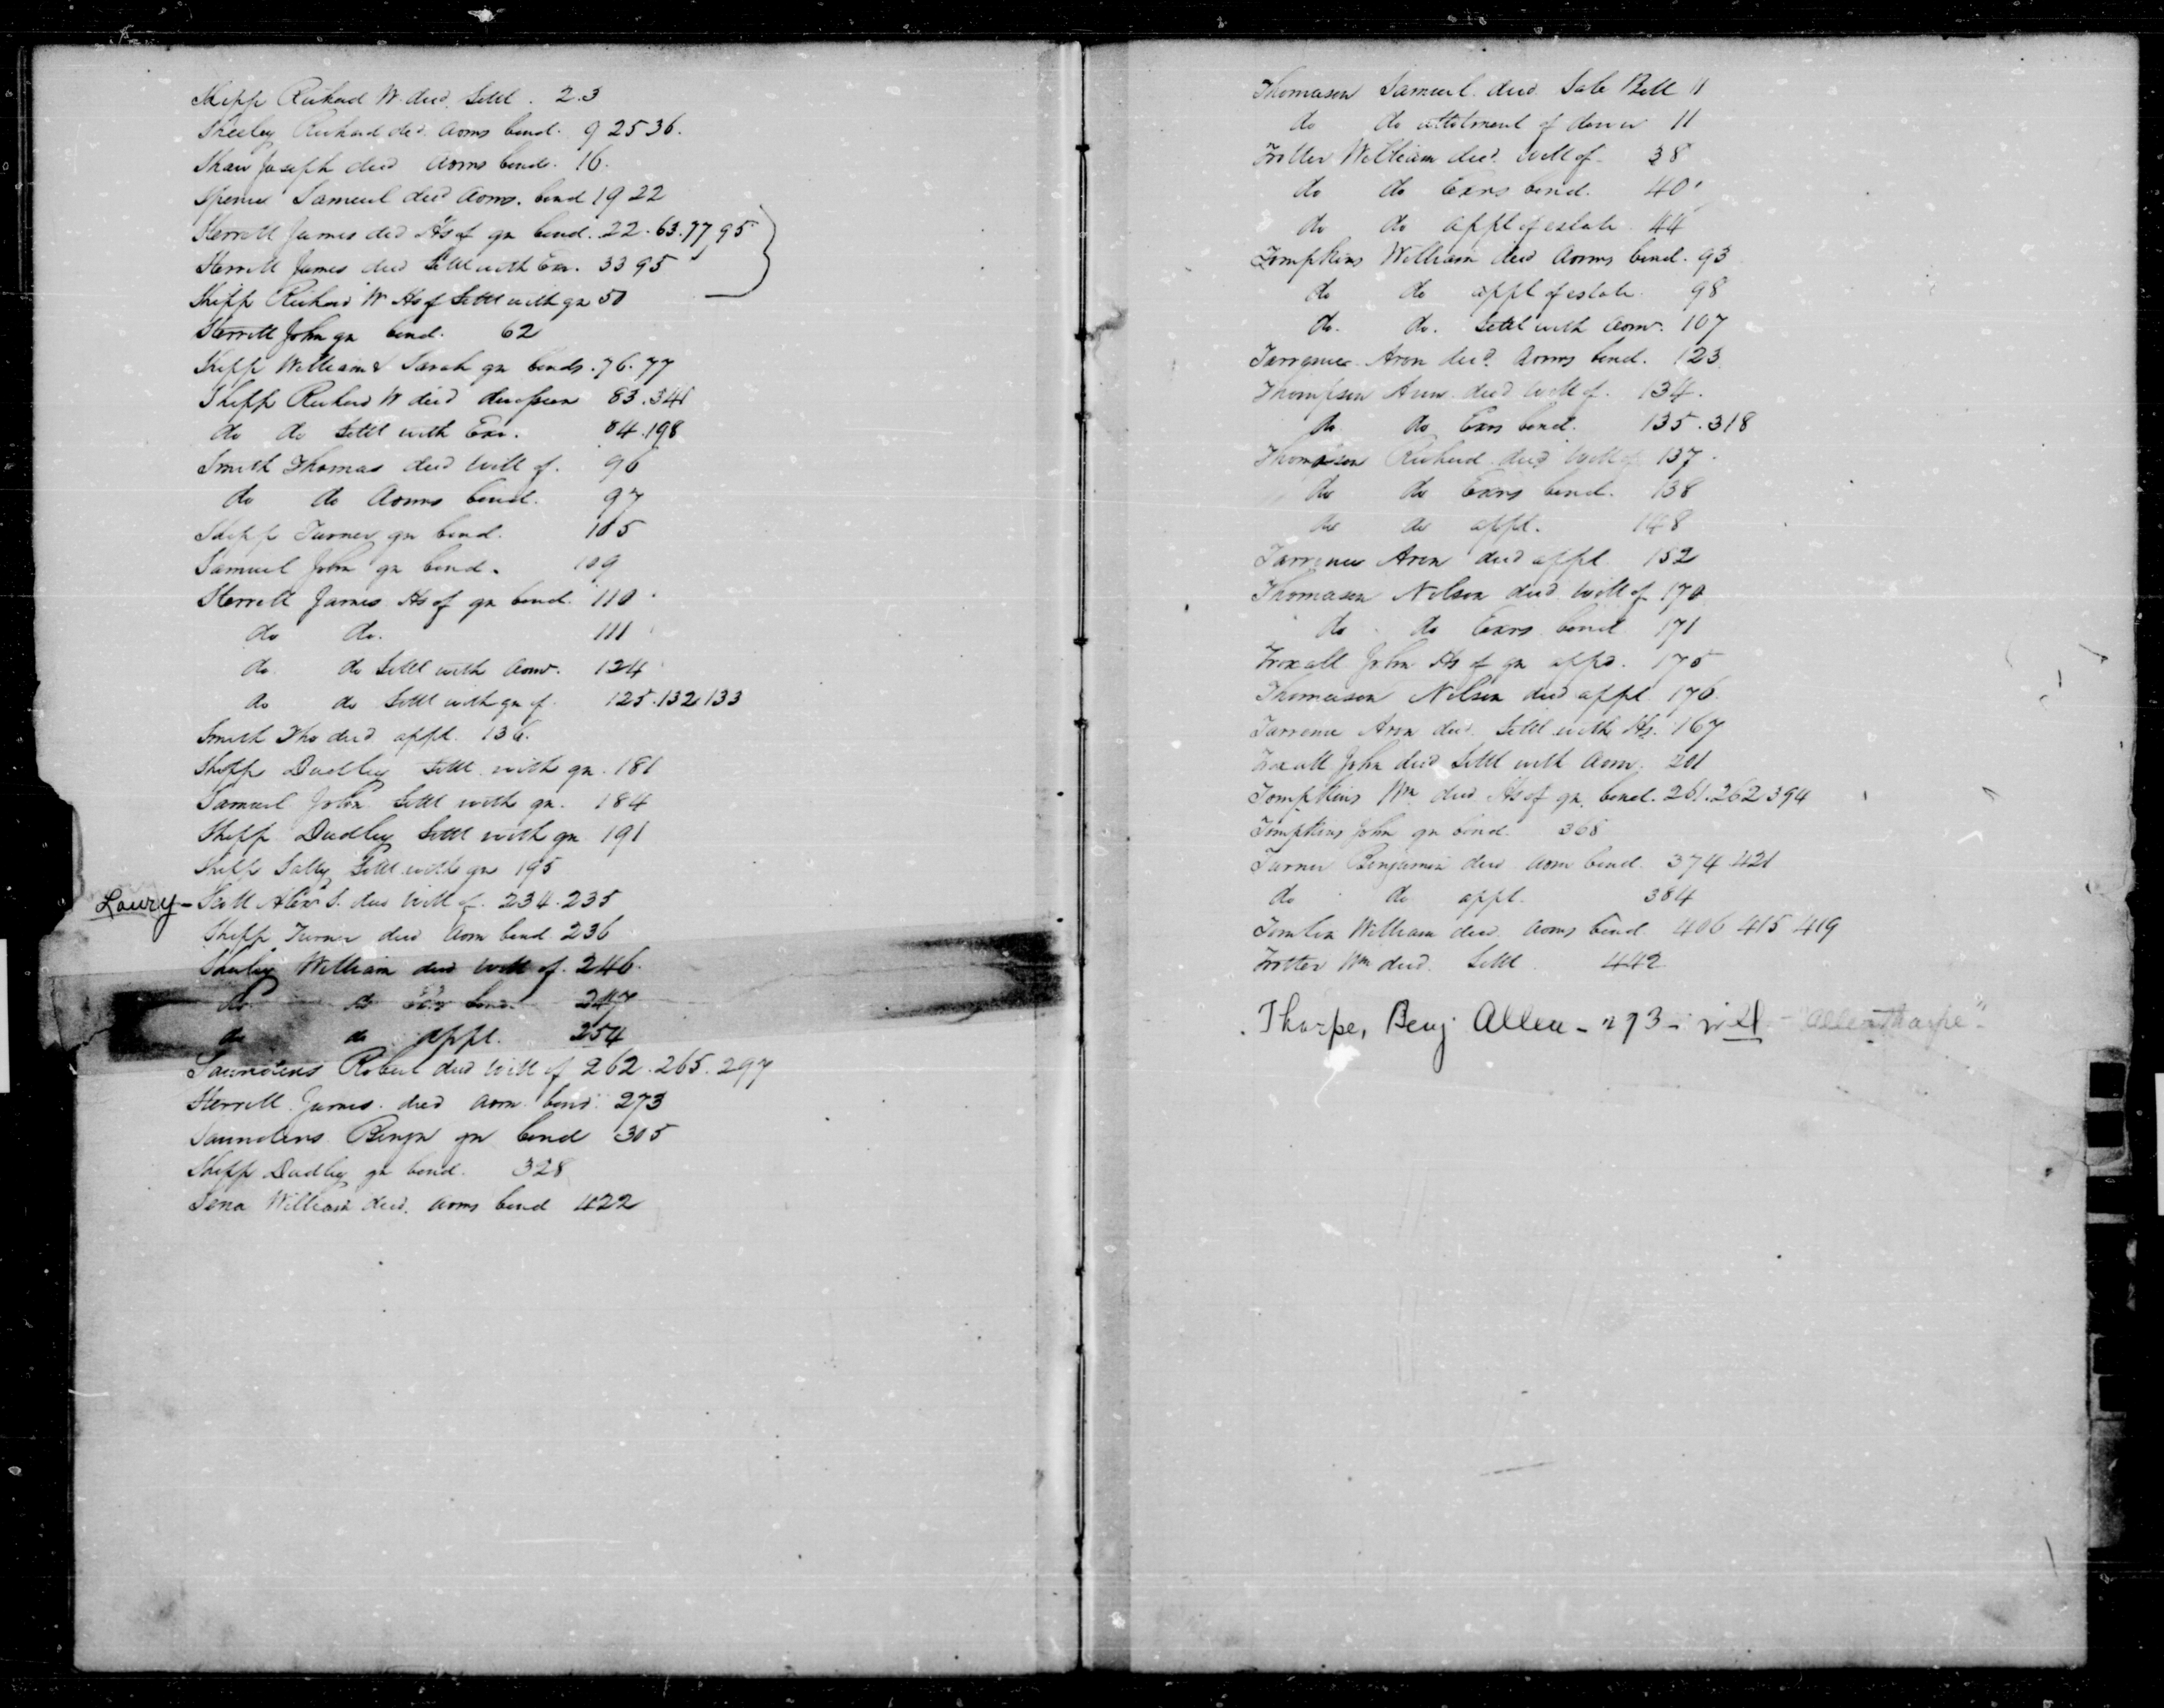 Shipp Richard W. decd. Settl. 2.3
Sheeley Richard decd. Adms bond. 9 25 36.
Shaw Joseph decd Adms bond. 16.
Spence Samuel decd Adms. bond 19 22
Sterrett James decd Hs of gn bond. 22. 63. 77 95
Sterrett James decd Settl with Exr. 33 95
Shipp Richard W Hs of Settl with gn 50
Sterrett John gn bond. 62
Shipp William & Sarah gn bonds. 76. 77
Shipp Richard W decd division 83. 341
do do Settl with Exr. 84. 198
Smith Thomas decd will of. 96
do do Adms bond. 97
Shipp Turner gn bond. 105
Samuel John gn bond. 109
Sterrett James Hs of gn bond. 110
do do. 111
do do Settl with Adm. 124
do do Settl with gn of 125. 132 133
Smith Tho decd appt. 136.
Shipp Dudley Settl with gn. 181
Samuel John Settl with gn. 184
Shipp Dudley Settl with gn 191
Shipp Sally Settl with gn 195
Lowry - Scott Alexr S. decd will of. 234. 235
Shipp Turner decd Adm bond 236
William decd will of. 246.
do do Exr bond 247
do do appt. 254
Saunders Robert decd will of 262. 265. 297
Sterrett James decd Adm bond 273
Saunders Benjn gn bond 305
Shipp Dudley gn bond. 328
William decd. Adms bond 422
Thomason Samuel decd Sale Bill 11
do do allotment of dower 11
Trotter William decd. will of 38
do do Exrs bond. 40
do do appt of estate 44
Tompkins William decd Adms bond. 93
do do appt of estate 98
do. do. Settl with Adm. 107
Torrence Aron decd. Adms bond. 123
Thompson Ann decd will of. 134.
do do Exrs bond. 135. 318
Thompson Richard decd will of 137.
do do Exrs bond. 138
do do appt. 148
Torrence Aron decd appt 152
Thomason Nelson decd will of 170
do do Exrs bond 171
Troxall John Hs of gn appd. 175
Thomason Nelson decd appt 176.
Torrence Aron decd. Settl with Hs. 167
Troxall John decd Settl with Adm. 201
Tompkins Wm decd Hs of gn. bond. 261. 262 394
Tompkins John gn bond 368
Turner Benjamin decd Adm bond 374 421
do do appt. 384
Tomlin William decd. Adms bond 406 415 419
Trotter Wm decd. Settl 442
Tharpe, Benj Allen - 293 - will - "Allen Tharpe"